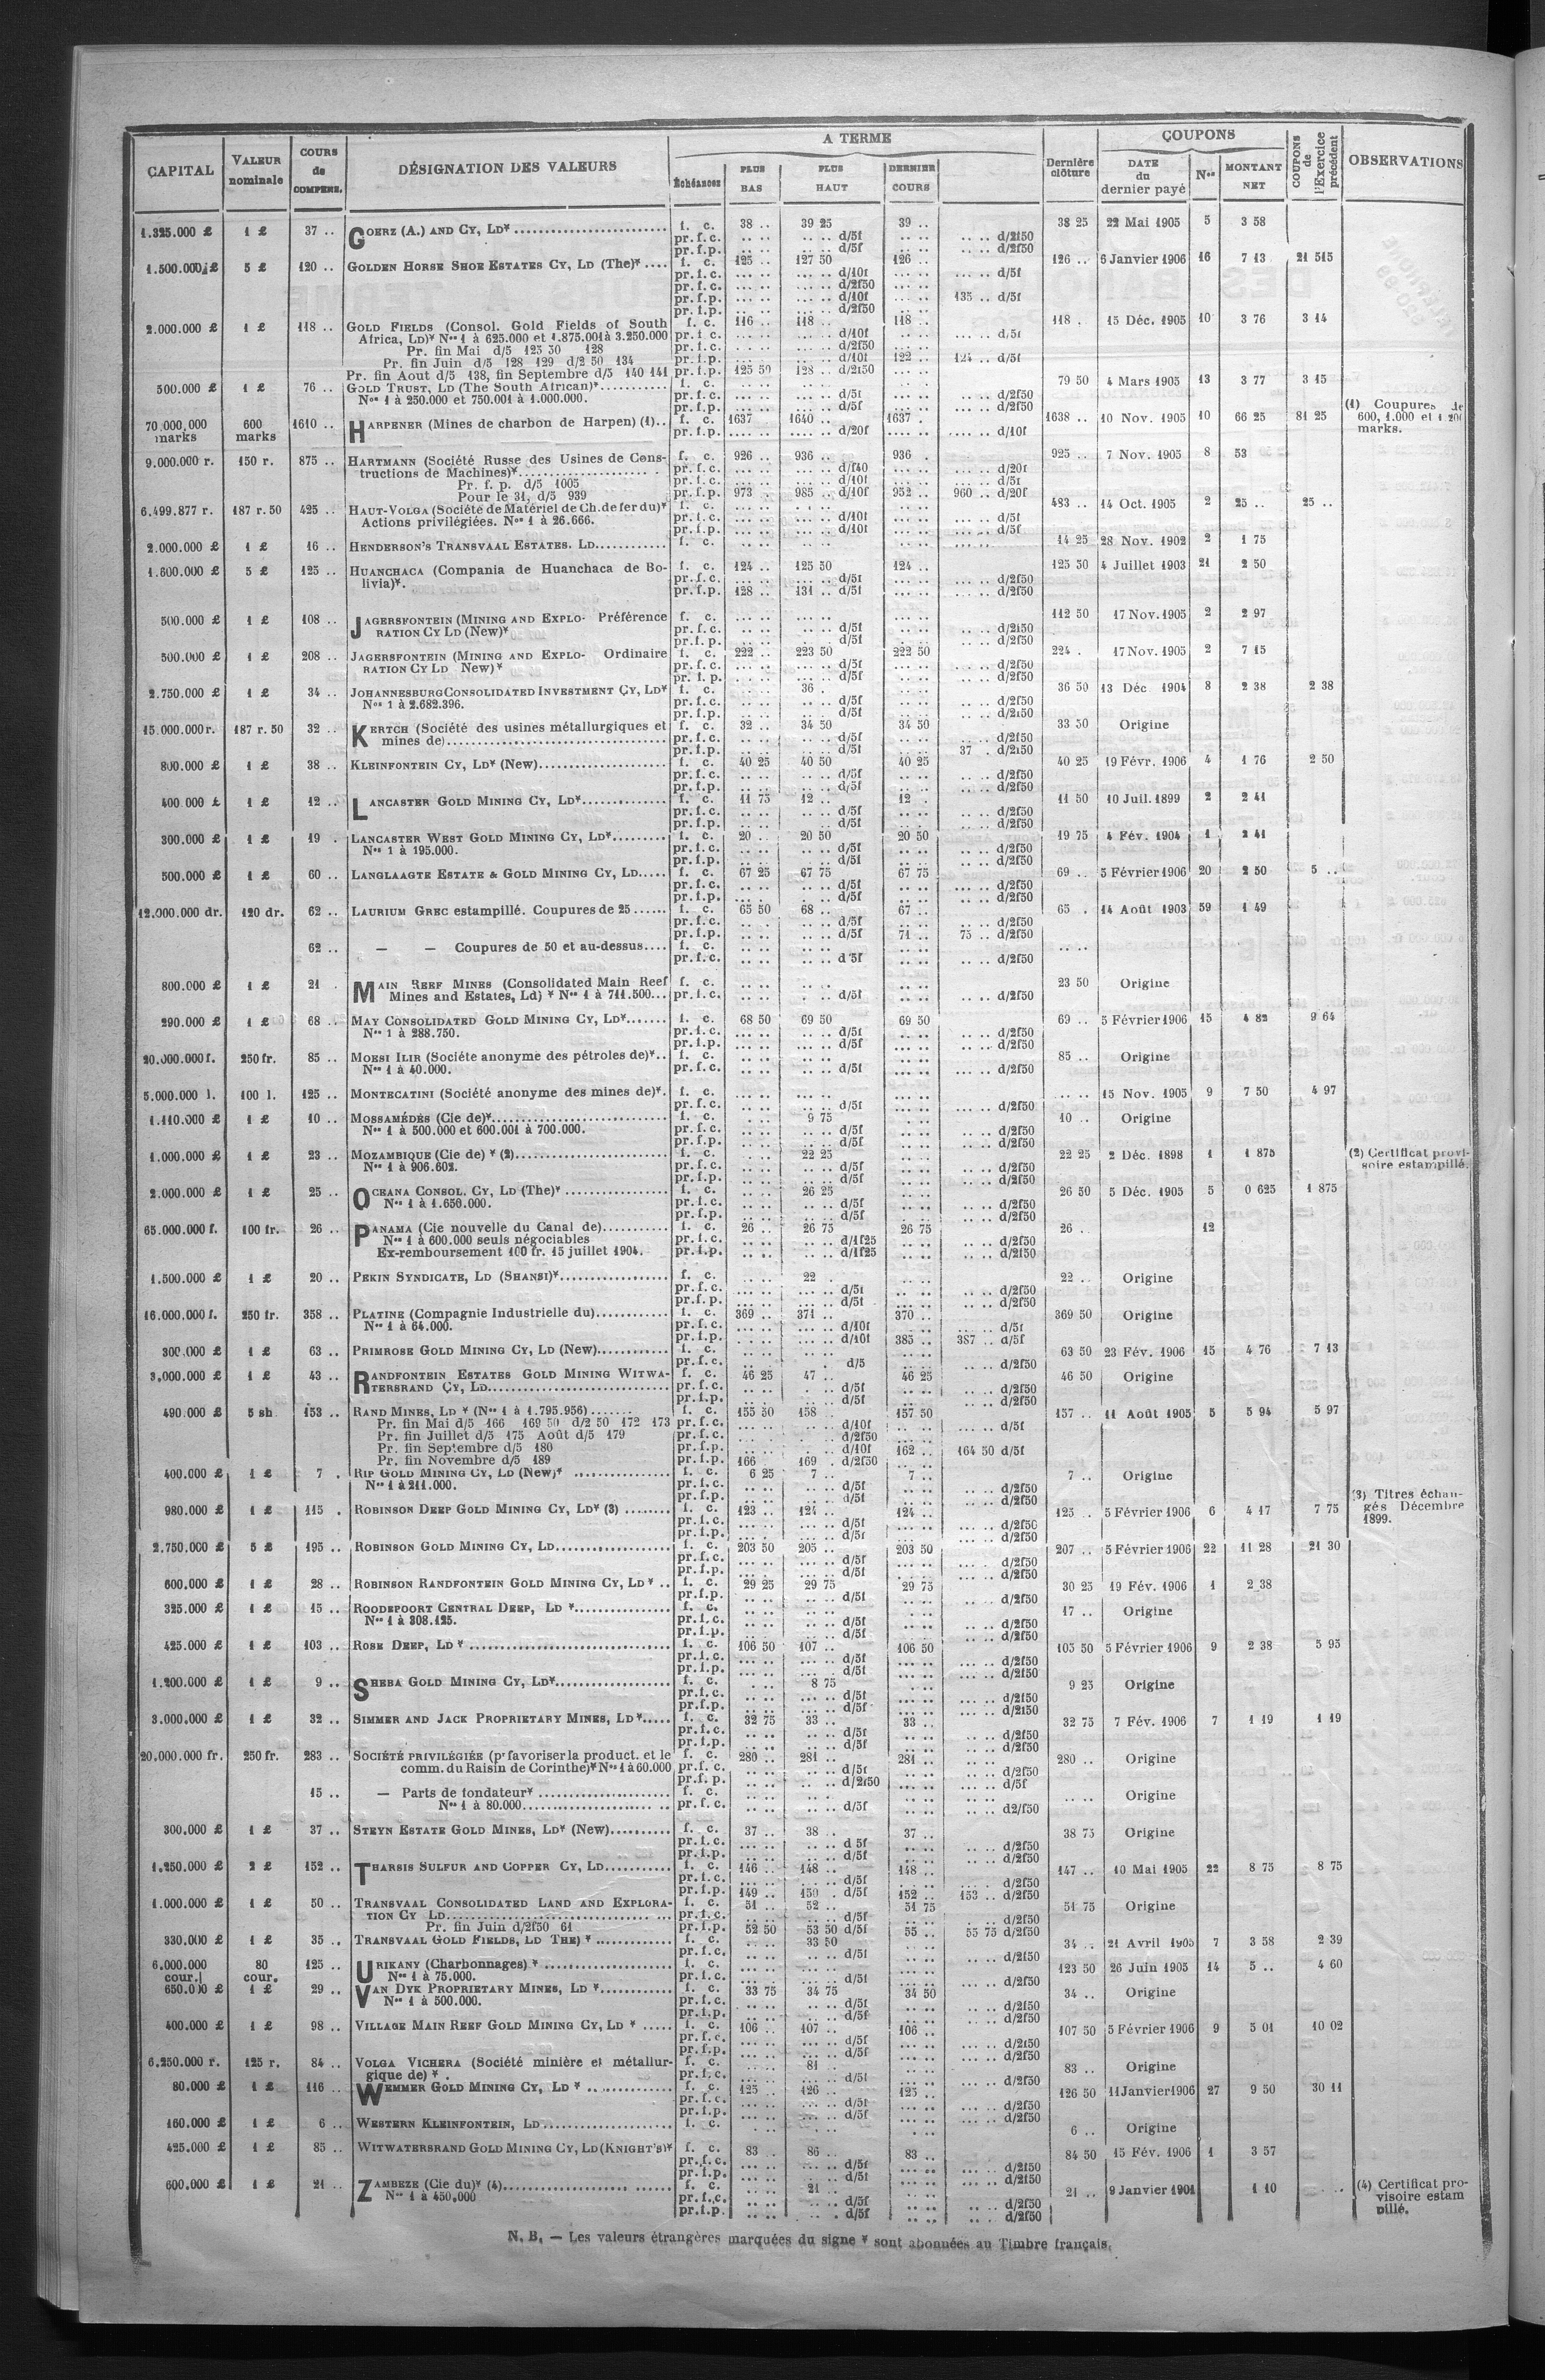 CAPITAL | VALEUR nominale | COURS de COMPENS. | DÉSIGNATION DES VALEURS | A TERME | Échéances | PLUS BAS | PLUS HAUT | DERNIER COURS | Dernière clôture | COUPONS | DATE du dernier payé | Nos | MONTANT NET | COUPONS de l'Exercice précédent | OBSERVATIONS
1.325.000 £ 1 £ 37 .. GOERZ (A.) AND CY, LD* f. c. 38 .. 39 25 39 .. 38 25 22 Mai 1905 5 3 58
pr. f. c. .. .. .. .. d/5f .. .. .. .. d/2f50
pr. f. p. .. .. .. .. d/5f .. .. .. .. d/2f50
1.500.000 £ 5 £ 120 .. GOLDEN HORSE SHOE ESTATES CY, LD (The)* f. c. 125 .. 127 50 126 .. 126 .. 6 Janvier 1906 16 7 13 21 515
pr. f. c. d/10f d/5f
pr. f. c. d/2f50
pr. f. p. d/10f 135 .. d/5f
pr. f. p. d/2f50
2.000.000 £ 1 £ 118 .. GOLD FIELDS (Consol. Gold Fields of South f. c. 116 .. 118 .. 118 .. 118 . 15 Déc. 1905 10 3 76 3 14
Africa, LD)* Nos 1 à 625.000 et 1.875.001 à 3.250.000 pr. f. c. d/10f d/5f
Pr. fin Mai d/5 125 50 128 pr. f. c. d/2f50
Pr. fin Juin d/5 128 129 d/2 50 134 pr. f. p. d/10f 122 .. 124 .. d/5f
Pr. fin Aout d/5 138, fin Septembre d/5 140 141 pr. f. p. 125 50 128 .. d/2f50
500.000 £ 1 £ 76 .. GOLD TRUST, LD (The South African)* f. c. 79 50 4 Mars 1905 13 3 77 3 15
Nos 1 à 250.000 et 750.001 à 1.000.000. pr. f. c. d/5f d/2f50
pr. f. p. d/5f d/2f50
70.000.000 marks 600 marks 1610 .. HARPENER (Mines de charbon de Harpen) (1).. f. c. 1637 1640 .. 1637 . 1638 .. 10 Nov. 1905 10 66 25 81 25 (1) Coupures de 600, 1.000 et 1.200 marks.
pr. f. p. d/20f d/10f
9.000.000 r. 150 r. 875 .. HARTMANN (Société Russe des Usines de Cons- f. c. 926 .. 936 .. 936 . 925 .. 7 Nov. 1905 8 53
tructions de Machines)* pr. f. c. d/f40 d/20f
Pr. f. p. d/5 1005 pr. f. c. d/10f d/5f
Pour le 31, d/5 939 pr. f. p. 973 . 985 .. d/10f 952 .. 960 .. d/20f
6.499.877 r. 187 r. 50 425 .. HAUT-VOLGA (Société de Matériel de Ch. de fer du)* f. c. 483 .. 14 Oct. 1905 2 25 .. 25 ..
Actions privilégiées. Nos 1 à 26.666. pr. f. c. d/10f d/5f
pr. f. p. d/10f d/5f
2.000.000 £ 1 £ 16 .. HENDERSON'S TRANSVAAL ESTATES. LD f. c. 14 25 28 Nov. 1902 2 1 75
1.600.000 £ 5 £ 125 .. HUANCHACA (Compania de Huanchaca de Bo- f. c. 124 .. 125 50 124 .. 125 50 4 Juillet 1903 21 2 50
livia)*. pr. f. c. d/5f d/2f50
pr. f. p. 128 .. 131 .. d/5f d/2f50
500.000 £ 1 £ 108 .. JAGERSFONTEIN (MINING AND EXPLO- Préférence f. c. 112 50 17 Nov. 1905 2 2 97
RATION CY LD (New)* pr. f. c. d/5f d/2f50
pr. f. p. d/5f d/2f50
500.000 £ 1 £ 208 .. JAGERSFONTEIN (MINING AND EXPLO- Ordinaire f. c. 222 .. 223 50 222 50 224 . 17 Nov. 1905 2 7 15
RATION CY LD New)* pr. f. c. d/5f d/2f50
pr. f. p. d/5f d/2f50
2.750.000 £ 1 £ 34 .. JOHANNESBURG CONSOLIDATED INVESTMENT CY, LD* f. c. 36 . 36 50 13 Déc. 1904 8 2 38 2 38
Nos 1 à 2.682.396. pr. f. c. d/5f d/2f50
pr. f. p. d/5f d/2f50
15.000.000 r. 187 r. 50 32 .. KERTCH (Société des usines métallurgiques et f. c. 32 .. 34 50 34 50 33 50 Origine
mines de) pr. f. c. d/5f d/2f50
pr. f. p. d/5f 37 . d/2f50
800.000 £ 1 £ 38 .. KLEINFONTEIN CY, LD* (New) f. c. 40 25 40 50 40 25 40 25 19 Févr. 1906 4 1 76 2 50
pr. f. c. d/5f d/2f50
pr. f. p. d/5f d/2f50
400.000 £ 1 £ 12 .. LANCASTER GOLD MINING CY, LD* f. c. 11 75 12 .. 12 . 11 50 10 Juil. 1899 2 2 41
pr. f. c. d/5f d/2f50
pr. f. p. d/5f d/2f50
300.000 £ 1 £ 19 . LANCASTER WEST GOLD MINING CY, LD* f. c. 20 .. 20 50 20 50 19 75 4 Fév. 1904 1 2 41
Nos 1 à 195.000. pr. f. c. d/5f d/2f50
pr. f. p. d/5f d/2f50
500.000 £ 1 £ 60 .. LANGLAAGTE ESTATE & GOLD MINING CY, LD f. c. 67 25 67 75 67 75 69 .. 5 Février 1906 20 2 50 5 ..
pr. f. c. d/5f d/2f50
pr. f. p. d/5f d/2f50
12.000.000 dr. 120 dr. 62 .. LAURIUM GREC estampillé. Coupures de 25 f. c. 65 50 68 .. 67 .. 65 . 14 Août 1903 59 1 49
pr. f. c. d/5f d/2f50
pr. f. p. d/5f 71 .. 75 .. d/2f50
62 .. — — Coupures de 50 et au-dessus f. c.
pr. f. c. d 5f d/2f50
800.000 £ 1 £ 21 . MAIN REEF MINES (Consolidated Main Reef f. c. 23 50 Origine
Mines and Estates, Ld) * Nos 1 à 711.500 pr. f. c. d/5f d/2f50
290.000 £ 1 £ 68 .. MAY CONSOLIDATED GOLD MINING CY, LD* f. c. 68 50 69 50 69 50 69 .. 5 Février 1906 15 4 82 9 64
Nos 1 à 288.750. pr. f. c. d/5f d/2f50
pr. f. p. d/5f d/2f50
20.000.000 f. 250 fr. 85 .. MOESI ILIR (Sociéte anonyme des pétroles de)* f. c. 85 .. Origine
Nos 1 à 40.000. pr. f. c. d/5f d/2f50
5.000.000 l. 100 l. 125 .. MONTECATINI (Société anonyme des mines de)*. f. c. 15 Nov. 1905 9 7 50 4 97
pr. f. c. d/5f d/2f50
1.110.000 £ 1 £ 10 .. MOSSAMÉDÈS (Cie de)* f. c. 9 75 10 .. Origine
Nos 1 à 500.000 et 600.001 à 700.000. pr. f. c. d/5f d/2f50
pr. f. p. d/5f d/2f50
1.000.000 £ 1 £ 23 .. MOZAMBIQUE (Cie de) * (2) f. c. 22 25 22 25 2 Déc. 1898 1 1 875 (2) Certificat provi-
Nos 1 à 906.602. pr. f. c. d/5f d/2f50 soire estampillé.
pr. f. p. d/5f d/2f50
2.000.000 £ 1 £ 25 .. OCEANA CONSOL. CY, LD (The)* f. c. 26 25 26 50 5 Déc. 1905 5 0 625 1 875
Nos 1 à 1.656.000. pr. f. c. d/5f d/2f50
pr. f. p. d/5f d/2f50
65.000.000 f. 100 fr. 26 .. PANAMA (Cie nouvelle du Canal de) f. c. 26 .. 26 75 26 75 26 . 12
Nos 1 à 600.000 seuls négociables pr. f. c. d/1f25 d/2f50
Ex-remboursement 100 fr. 15 juillet 1904. pr. f. p. d/1f25 d/2f50
1.500.000 £ 1 £ 20 .. PEKIN SYNDICATE, LD (SHANSI)* f. c. 22 . 22 .. Origine
pr. f. c. d/5f d/2f50
pr. f. p. d/5f d/2f50
16.000.000 f. 250 fr. 358 .. PLATINE (Compagnie Industrielle du) f. c. 369 .. 371 .. 370 .. 369 50 Origine
Nos 1 à 64.000. pr. f. c. d/10f d/5f
pr. f. p. d/10f 385 .. 387 .. d/5f
300.000 £ 1 £ 63 .. PRIMROSE GOLD MINING CY, LD (New) f. c. 63 50 23 Fév. 1906 15 4 76 7 13
pr. f. c. d/5 d/2f50
3.000.000 £ 1 £ 43 .. RANDFONTEIN ESTATES GOLD MINING WITWA- f. c. 46 25 47 .. 46 25 46 50 Origine
TERSRAND CY, LD pr. f. c. d/5f d/2f50
pr. f. p. d/5f d/2f50
490.000 £ 5 sh 153 .. RAND MINES, LD * (Nos 1 à 1.795.956) f. c. 155 50 158 .. 157 50 157 .. 11 Août 1905 5 5 94 5 97
Pr. fin Mai d/5 166 169 50 d/2 50 172 173 pr. f. c. d/10f d/5f
Pr. fin Juillet d/5 175 Août d/5 179 pr. f. c. d/2f50
Pr. fin Septembre d/5 180 pr. f. p. d/10f 162 .. 164 50 d/5f
Pr. fin Novembre d/5 189 pr. f. p. 166 169 . d/2f50
400.000 £ 1 £ 7 . RIP GOLD MINING CY, LD (New)* f. c. 6 25 7 .. 7 .. 7 .. Origine
Nos 1 à 211.000. pr. f. c. d/5f d/2f50
pr. f. p. d/5f d/2f50
980.000 £ 1 £ 115 . ROBINSON DEEP GOLD MINING CY, LD* (3) f. c. 123 .. 124 .. 124 .. 125 .. 5 Février 1906 6 4 17 7 75 (3) Titres échan- gés Décembre 1899.
pr. f. c. d/5f d/2f50
pr. f. p. d/5f d/2f50
2.750.000 £ 5 £ 195 .. ROBINSON GOLD MINING CY, LD f. c. 203 50 205 .. 203 50 207 .. 5 Février 1906 22 11 28 21 30
pr. f. c. d/5f d/2f50
pr. f. p. d/5f d/2f50
600.000 £ 1 £ 28 .. ROBINSON RANDFONTEIN GOLD MINING CY, LD * f. c. 29 25 29 75 29 75 30 25 19 Fév. 1906 1 2 38
pr. f. p. d/5f d/2f50
325.000 £ 1 £ 15 .. ROODEPOORT CENTRAL DEEP, LD * f. c. 17 .. Origine
Nos 1 à 308.125. pr. f. c. d/5f d/2f50
pr. f. p. d/5f d/2f50
425.000 £ 1 £ 103 .. ROSE DEEP, LD * f. c. 106 50 107 .. 106 50 105 50 5 Février 1906 9 2 38 5 95
pr. f. c. d/5f d/2f50
pr. f. p. d/5f d/2f50
1.200.000 £ 1 £ 9 .. SHEBA GOLD MINING CY, LD* f. c. 8 75 9 25 Origine
pr. f. c. d/5f d/2f50
pr. f. p. d/5f d/2f50
3.000.000 £ 1 £ 32 .. SIMMER AND JACK PROPRIETARY MINES, LD* f. c. 32 75 33 .. 33 .. 32 75 7 Fév. 1906 7 1 19 1 19
pr. f. c. d/5f d/2f50
pr. f. p. d/5f d/2f50
20.000.000 fr. 250 fr. 283 .. SOCIÉTÉ PRIVILÉGIÉE (pr favoriser la product. et le f. c. 280 .. 281 .. 281 .. 280 .. Origine
comm. du Raisin de Corinthe)* Nos 1 à 60.000 pr. f. c. d/5f d/2f50
pr. f. p. d/2f50 d/5f
15 .. — Parts de fondateur* f. c. Origine
Nos 1 à 80.000 pr. f. c. d/5f d2/f50
300.000 £ 1 £ 37 .. STEYN ESTATE GOLD MINES, LD* (New) f. c. 37 .. 38 .. 37 .. 38 75 Origine
pr. f. c. d 5f d/2f50
pr. f. p. d/5f d/2f50
1.250.000 £ 2 £ 152 .. THARSIS SULFUR AND COPPER CY, LD f. c. 146 .. 148 .. 148 .. 147 .. 10 Mai 1905 22 8 75 8 75
pr. f. c. d/5f d/2f50
pr. f. p. 149 .. 150 . d/5f 152 .. 153 .. d/2f50
1.000.000 £ 1 £ 50 .. TRANSVAAL CONSOLIDATED LAND AND EXPLORA- f. c. 51 .. 52 .. 51 75 51 75 Origine
TION CY LD pr. f. c. d/5f d/2f50
Pr. fin Juin d/2f50 61 pr. f. p. 52 50 53 50 d/5f 55 .. 55 75 d/2f50
330.000 £ 1 £ 35 .. TRANSVAAL GOLD FIELDS, LD THE) * f. c. 33 50 34 .. 21 Avril 1905 7 3 58 2 39
pr. f. c. d/5f d/2f50
6.000.000 cour. 80 cour. 125 .. URIKANY (Charbonnages) * f. c. 123 50 26 Juin 1905 14 5 .. 4 60
Nos 1 à 75.000. pr. f. c. d/5f d/2f50
650.000 £ 1 £ 29 .. VAN DYK PROPRIETARY MINES, LD * f. c. 33 75 34 75 34 50 34 .. Origine
Nos 1 à 500.000. pr. f. c. d/5f d/2f50
pr. f. p. d/5f d/2f50
400.000 £ 1 £ 98 .. VILLAGE MAIN REEF GOLD MINING CY, LD * f. c. 106 .. 107 .. 106 .. 107 50 5 Février 1906 9 5 01 10 02
pr. f. c. d/5f d/2f50
pr. f. p. d/5f d/2f50
6.250.000 r. 125 r. 84 .. VOLGA VICHERA (Société minière et métallur- f. c. 81 83 .. Origine
gique de) * . pr. f. c. d/5f d/2f50
80.000 £ 1 £ 116 WEMMER GOLD MINING CY, LD * f. c. 125 126 .. 125 .. 126 50 11 Janvier 1906 27 9 50 30 11
pr. f. c. d/5f d/2f50
pr. f. p. d/5f d/2f50
160.000 £ 1 £ 6 .. WESTERN KLEINFONTEIN, LD f. c. 6 .. Origine
425.000 £ 1 £ 85 .. WITWATERSRAND GOLD MINING CY, LD (KNIGHT'S)* f. c. 83 .. 86 .. 83 .. 84 50 15 Fév. 1906 1 3 57
pr. f. c. d/5f d/2f50
pr. f. p. d/5f d/2f50
600.000 £ 1 £ 21 .. ZAMBEZE (Cie du)* (4) f. c. 21 .. 21 .. 9 Janvier 1901 1 10 (4) Certificat pro- visoire estam pillé.
Nos 1 à 450.000 pr. f. c. d/5f d/2f50
pr. f. p. d/5f d/2f50
N. B. — Les valeurs étrangères marquées du signe * sont abonnées au Timbre français.